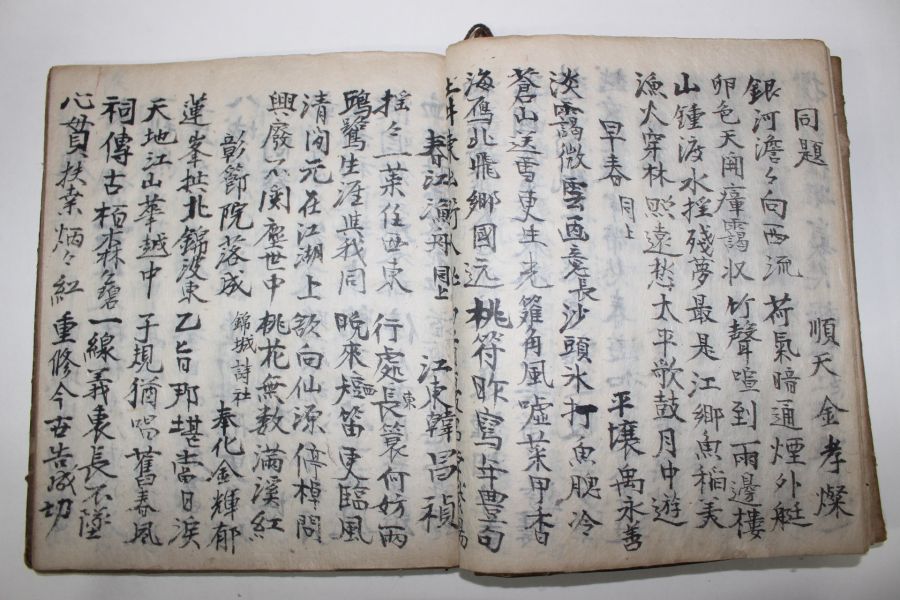 同題 順天金孝燦
銀河澹々向西流 荷氣暗通煙外艇
卵色天開瘴靄収 竹聲喧到雨邊樓
山鍾渡水摇殘夢 最是江鄉魚稻美
漁火穿林照遠愁 太平歌鼓月中遊
早春 同上 平壤禹永善
淡靄微雲西意長 沙頭氷打魚腮冷
蒼山送雪更生光 籬角風噓菜甲香
海鴈北飛鄉國遠 桃符昨寫年豊句
春江漁舟 同上 江東韓昌禎
摇々一葉任西東 行處長簑何妨雨
鷗鷺生涯與我同 晚來短笛更臨風
清閑元在江湖上 欲向仙源停棹問
興廢不関塵世中 桃花無数滿溪紅
彰節院落成 錦城詩社 奉化金輝郁
蓮峯拱北錦波東 乙旨那堪當日淚
天地江山華越中 子規猶唱舊春風
祠傳古栢森々蒼 一線義衷長不墜
心貫扶桑炳々紅 重修今古告成功